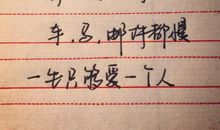 车、马、邮件都慢
一生只够爱一个人